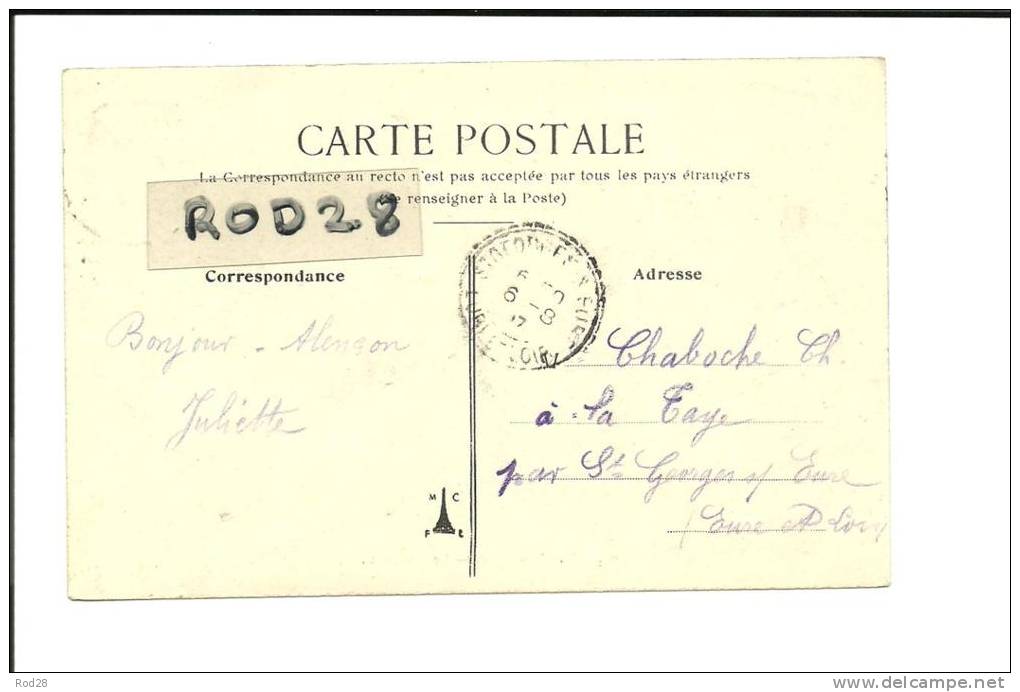 CARTE POSTALE
La Correspondance au recto n'est pas acceptée par tous les pays étrangers
renseigner à la Poste)
ROD28
Correspondance
Adresse
Bonjour - Alençon
Juliette
Chaboche Ch.
à la Taye
par St Georges s/ Eure
(Eure et Loir
M C
F E
Rod28
www.delcampe.net